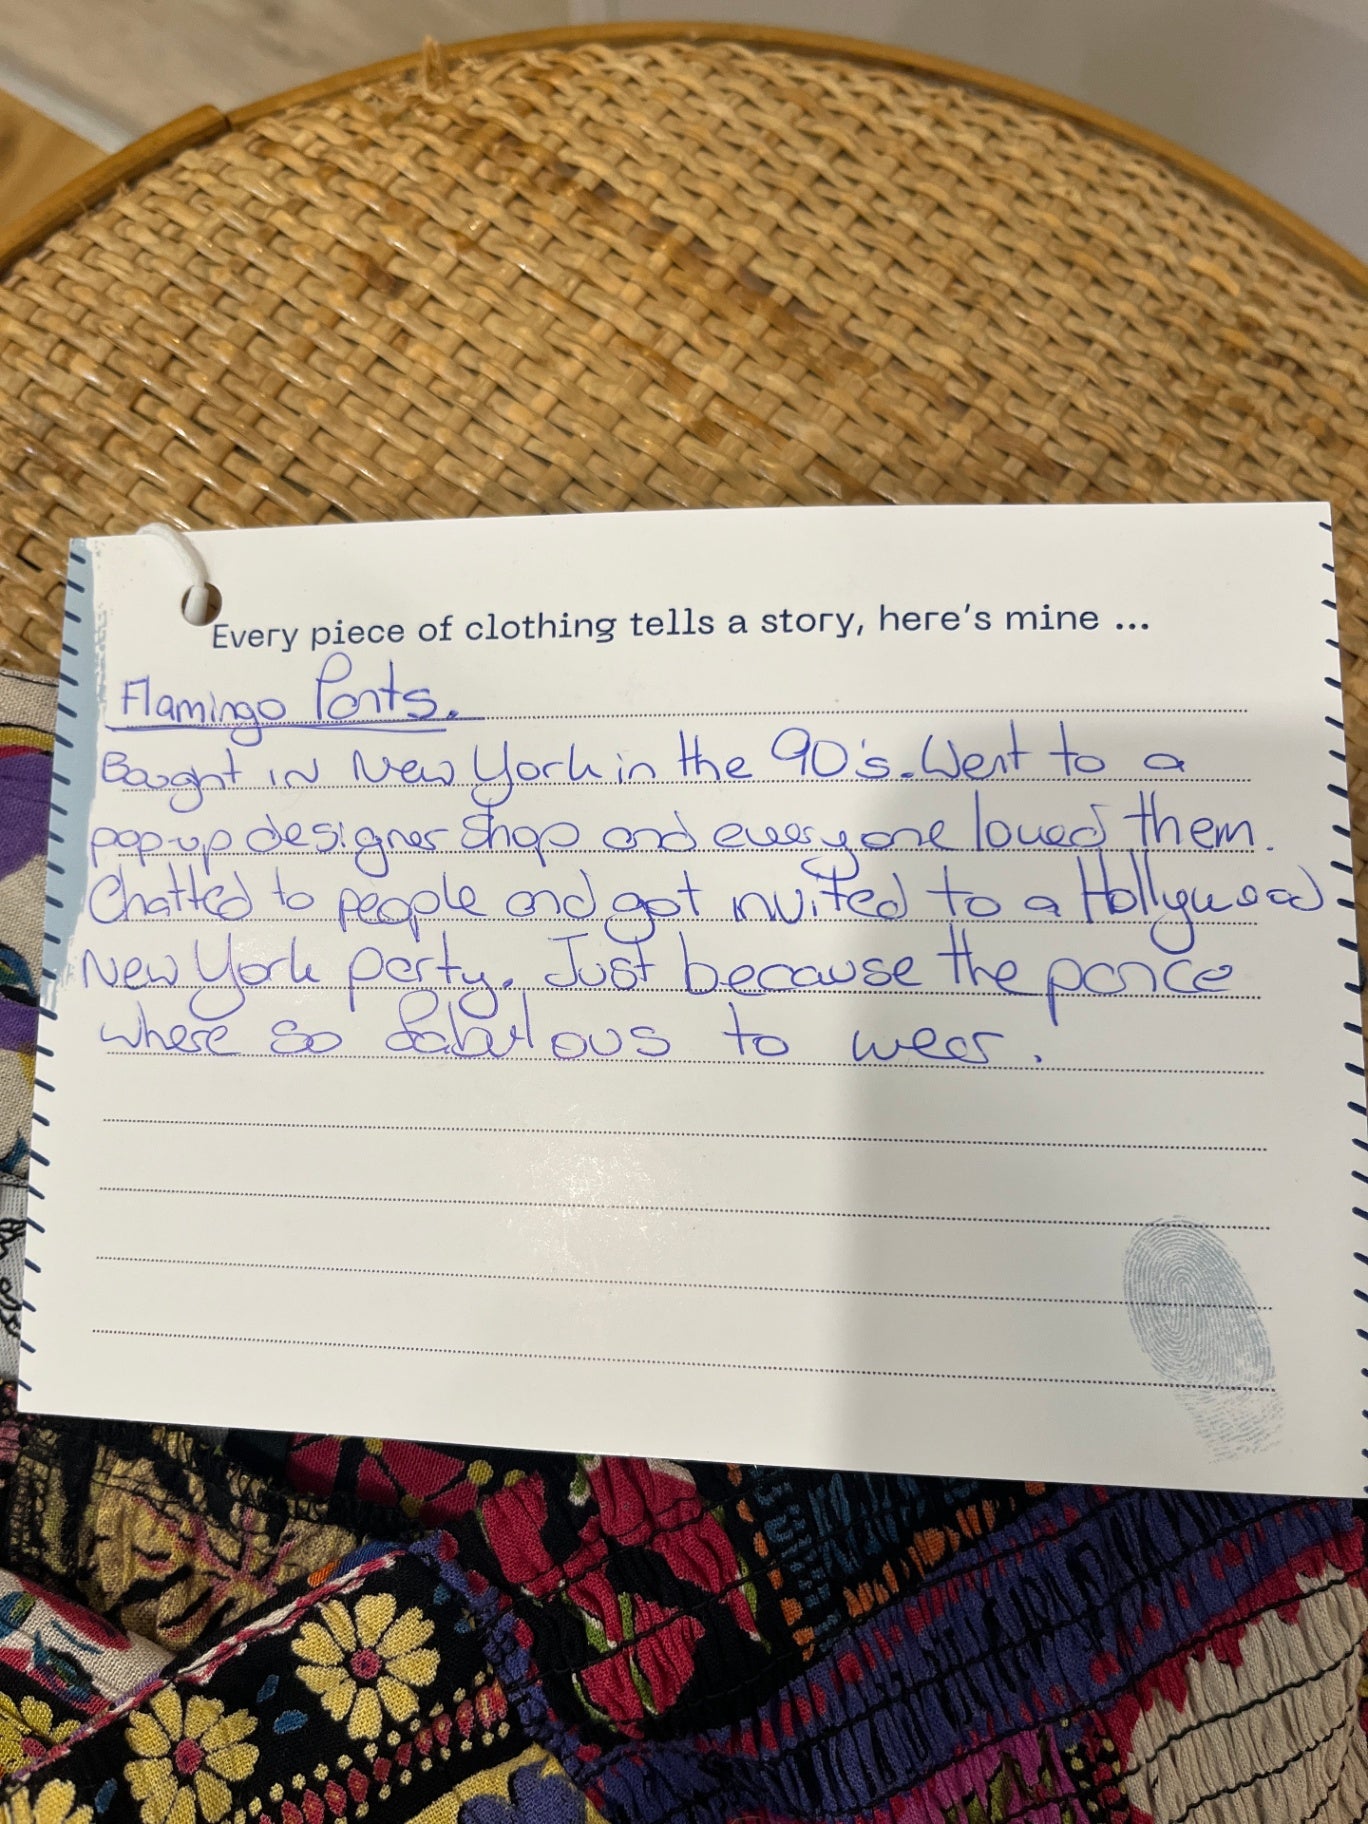 Every piece of clothing tells a story, here's mine ...
Flamingo Pants.
Bought in New York in the 90's. Went to a
pop-up designer shop and everyone loved them.
Chatted to people and got invited to a Hollywood
New York party. Just because the pance
where so fabulous to wear.